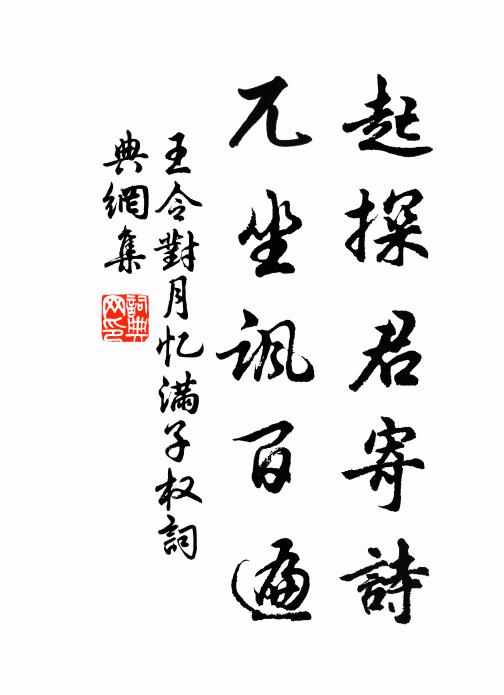 起探君寄詩
兀坐諷百遍
王令對月忆滿子权詞
典網集
詞典
网印